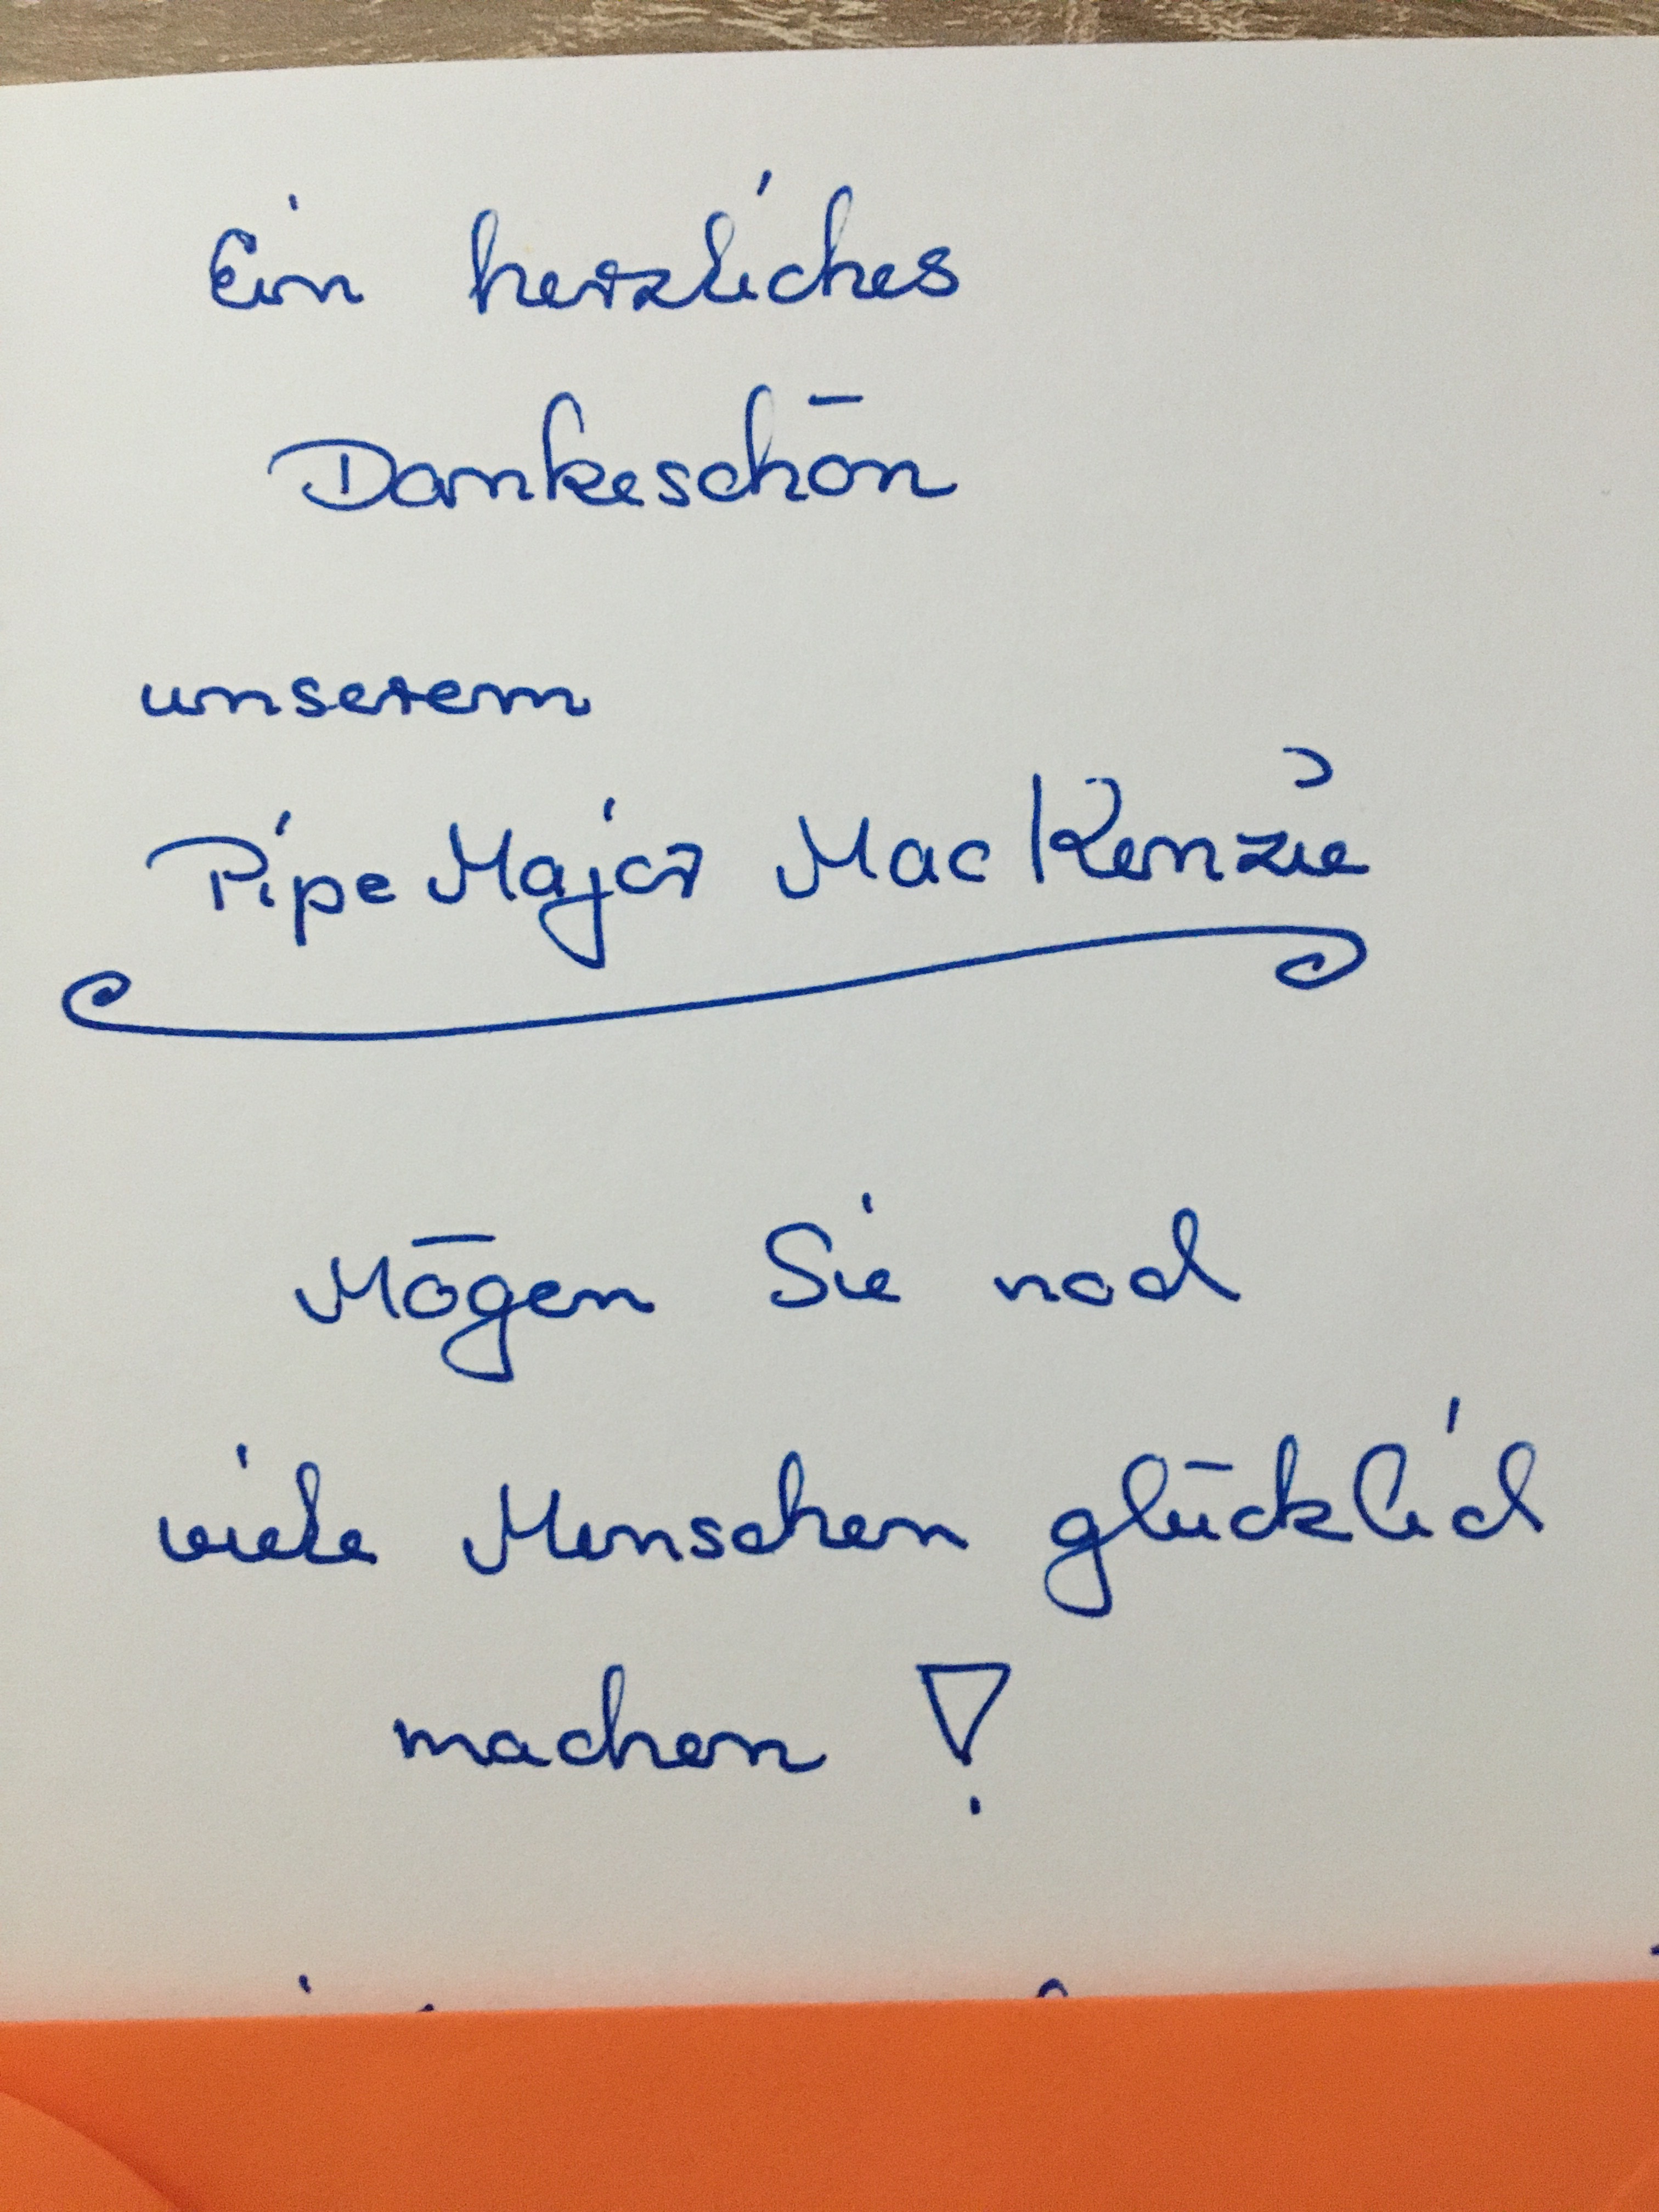 Ein herzliches
Dankeschön
unserem
Pipe Major MacKenzie
Mögen Sie noch
viele Menschen glücklich
machen!